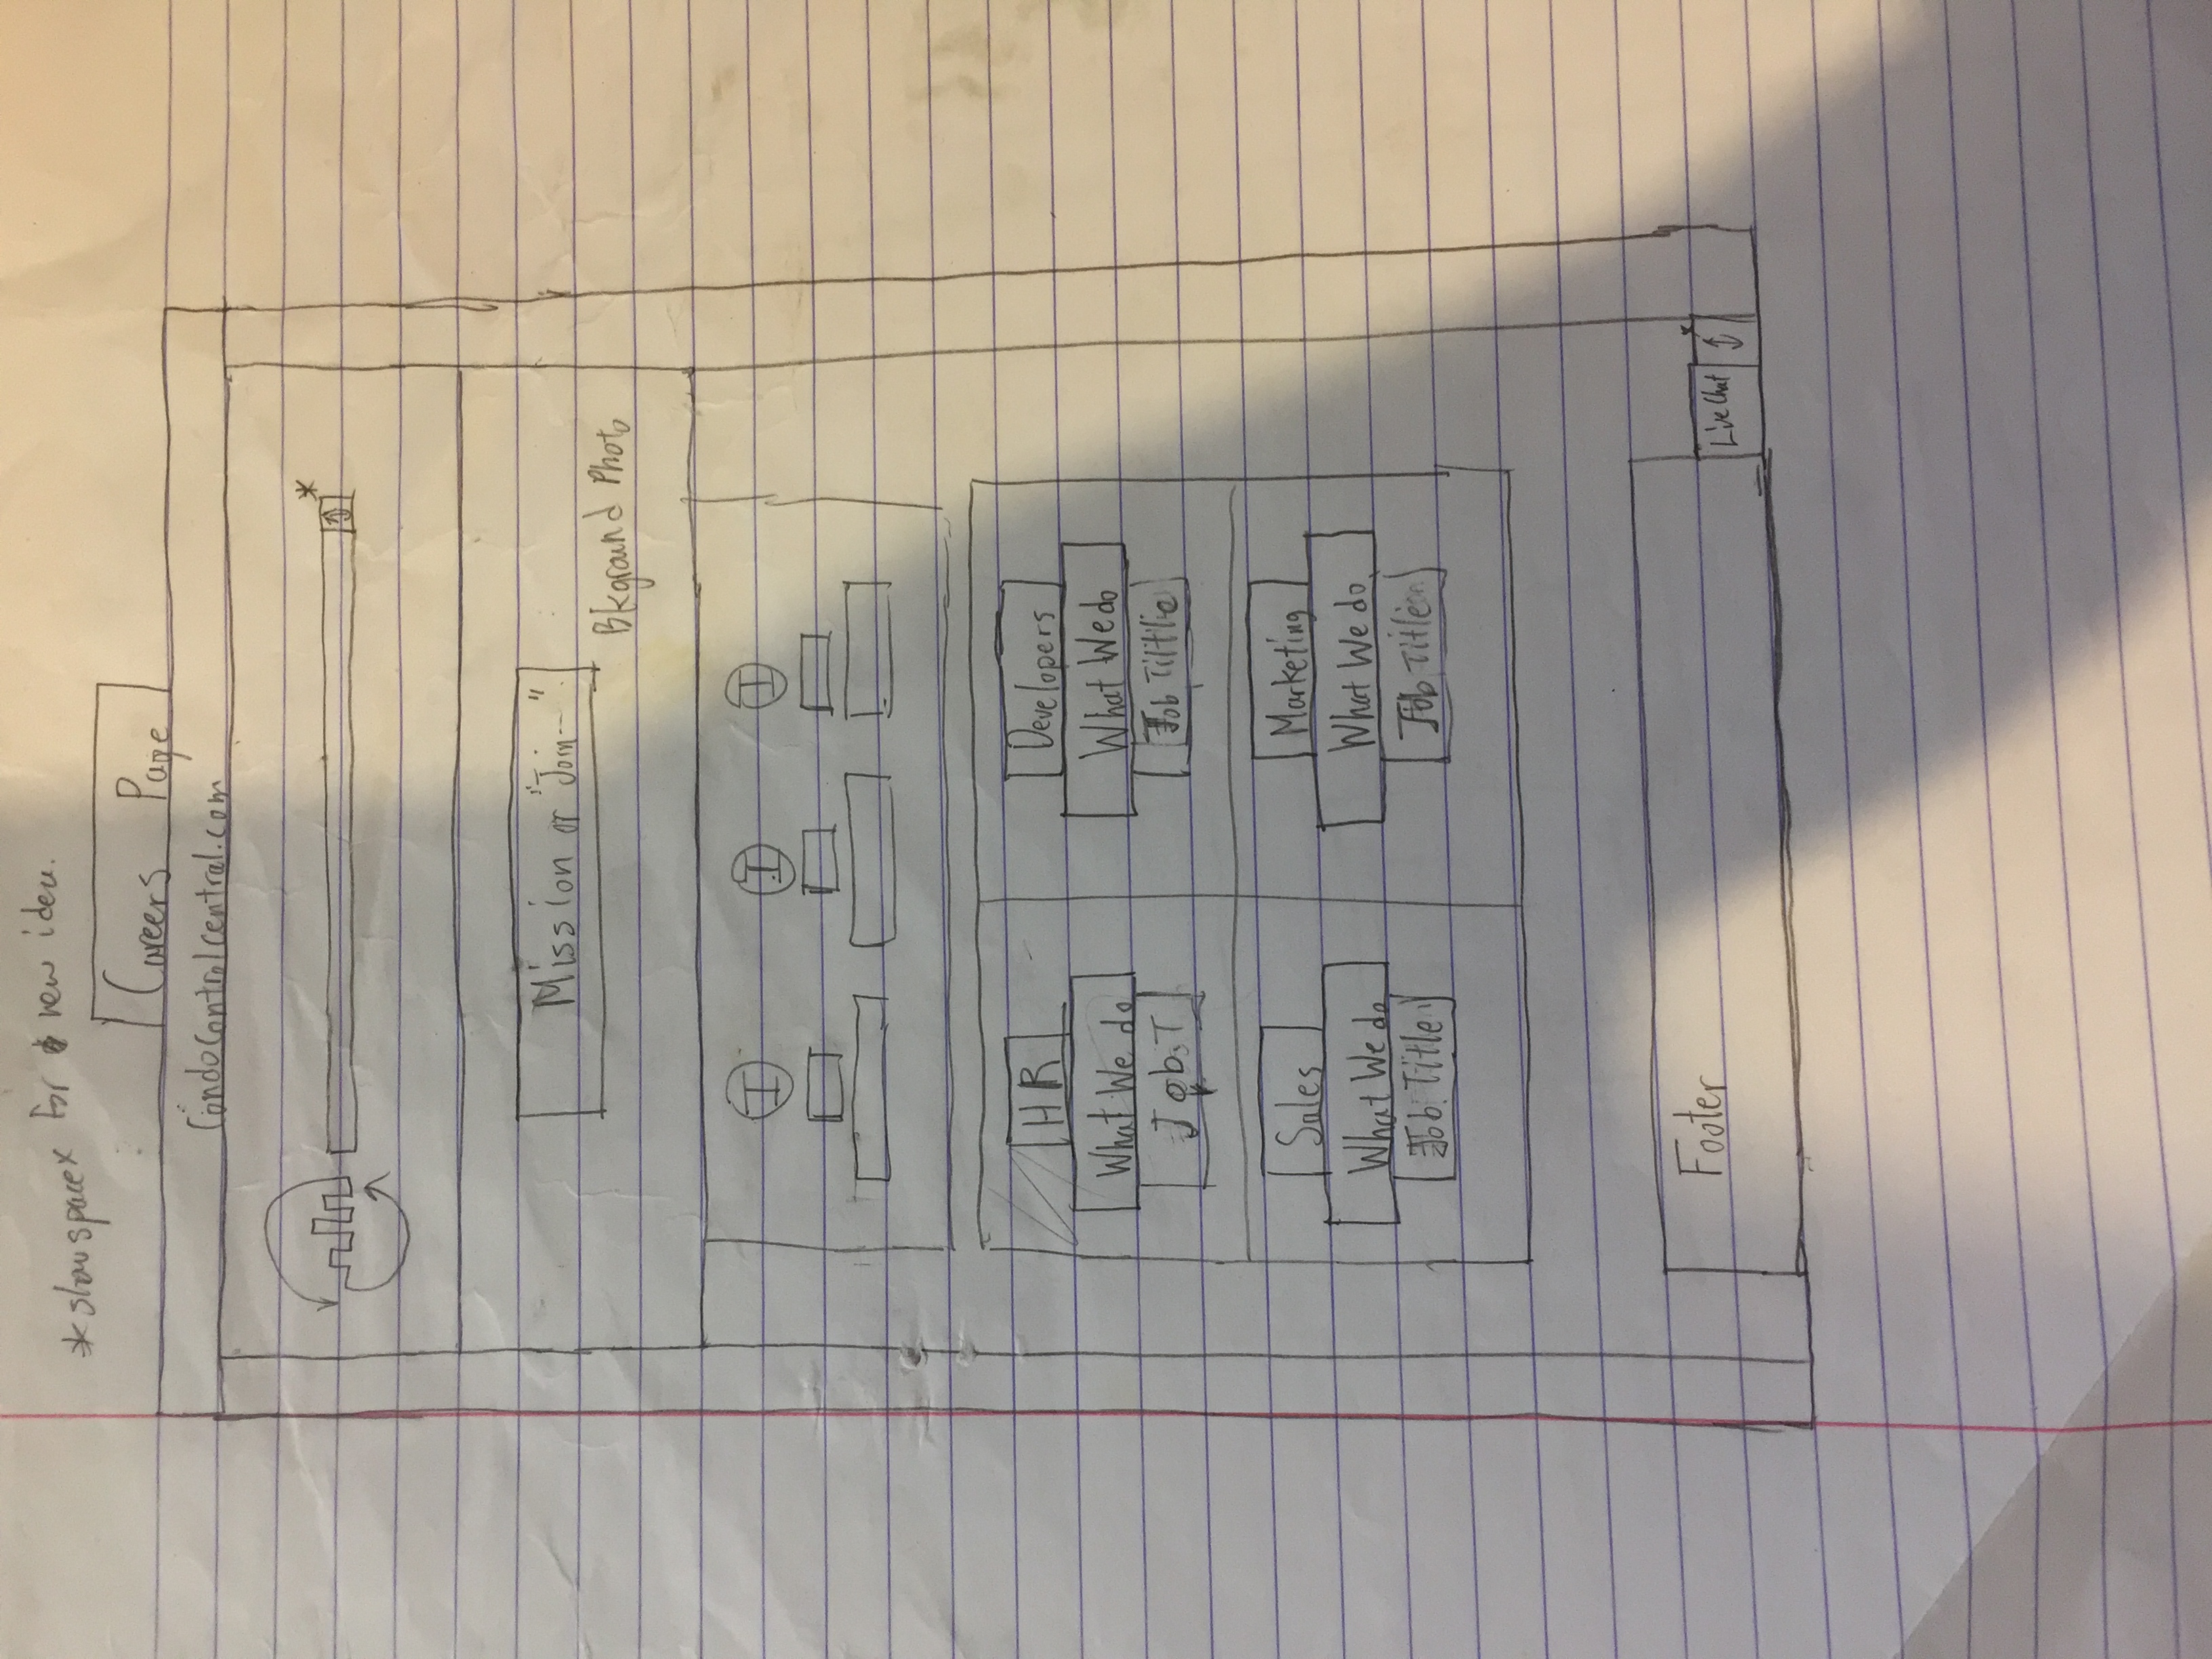 * show spacex for new idea.
Careers Page
Condocontrolcentral.com
*
Mission or "Join--"
Bkground Photo
I I I
HR
What We do
Job T
Developers
What We do
Job Tiltle
Sales
What We do
Job Title
Marketing
What We do
Job Title
Footer
Live Chat
*